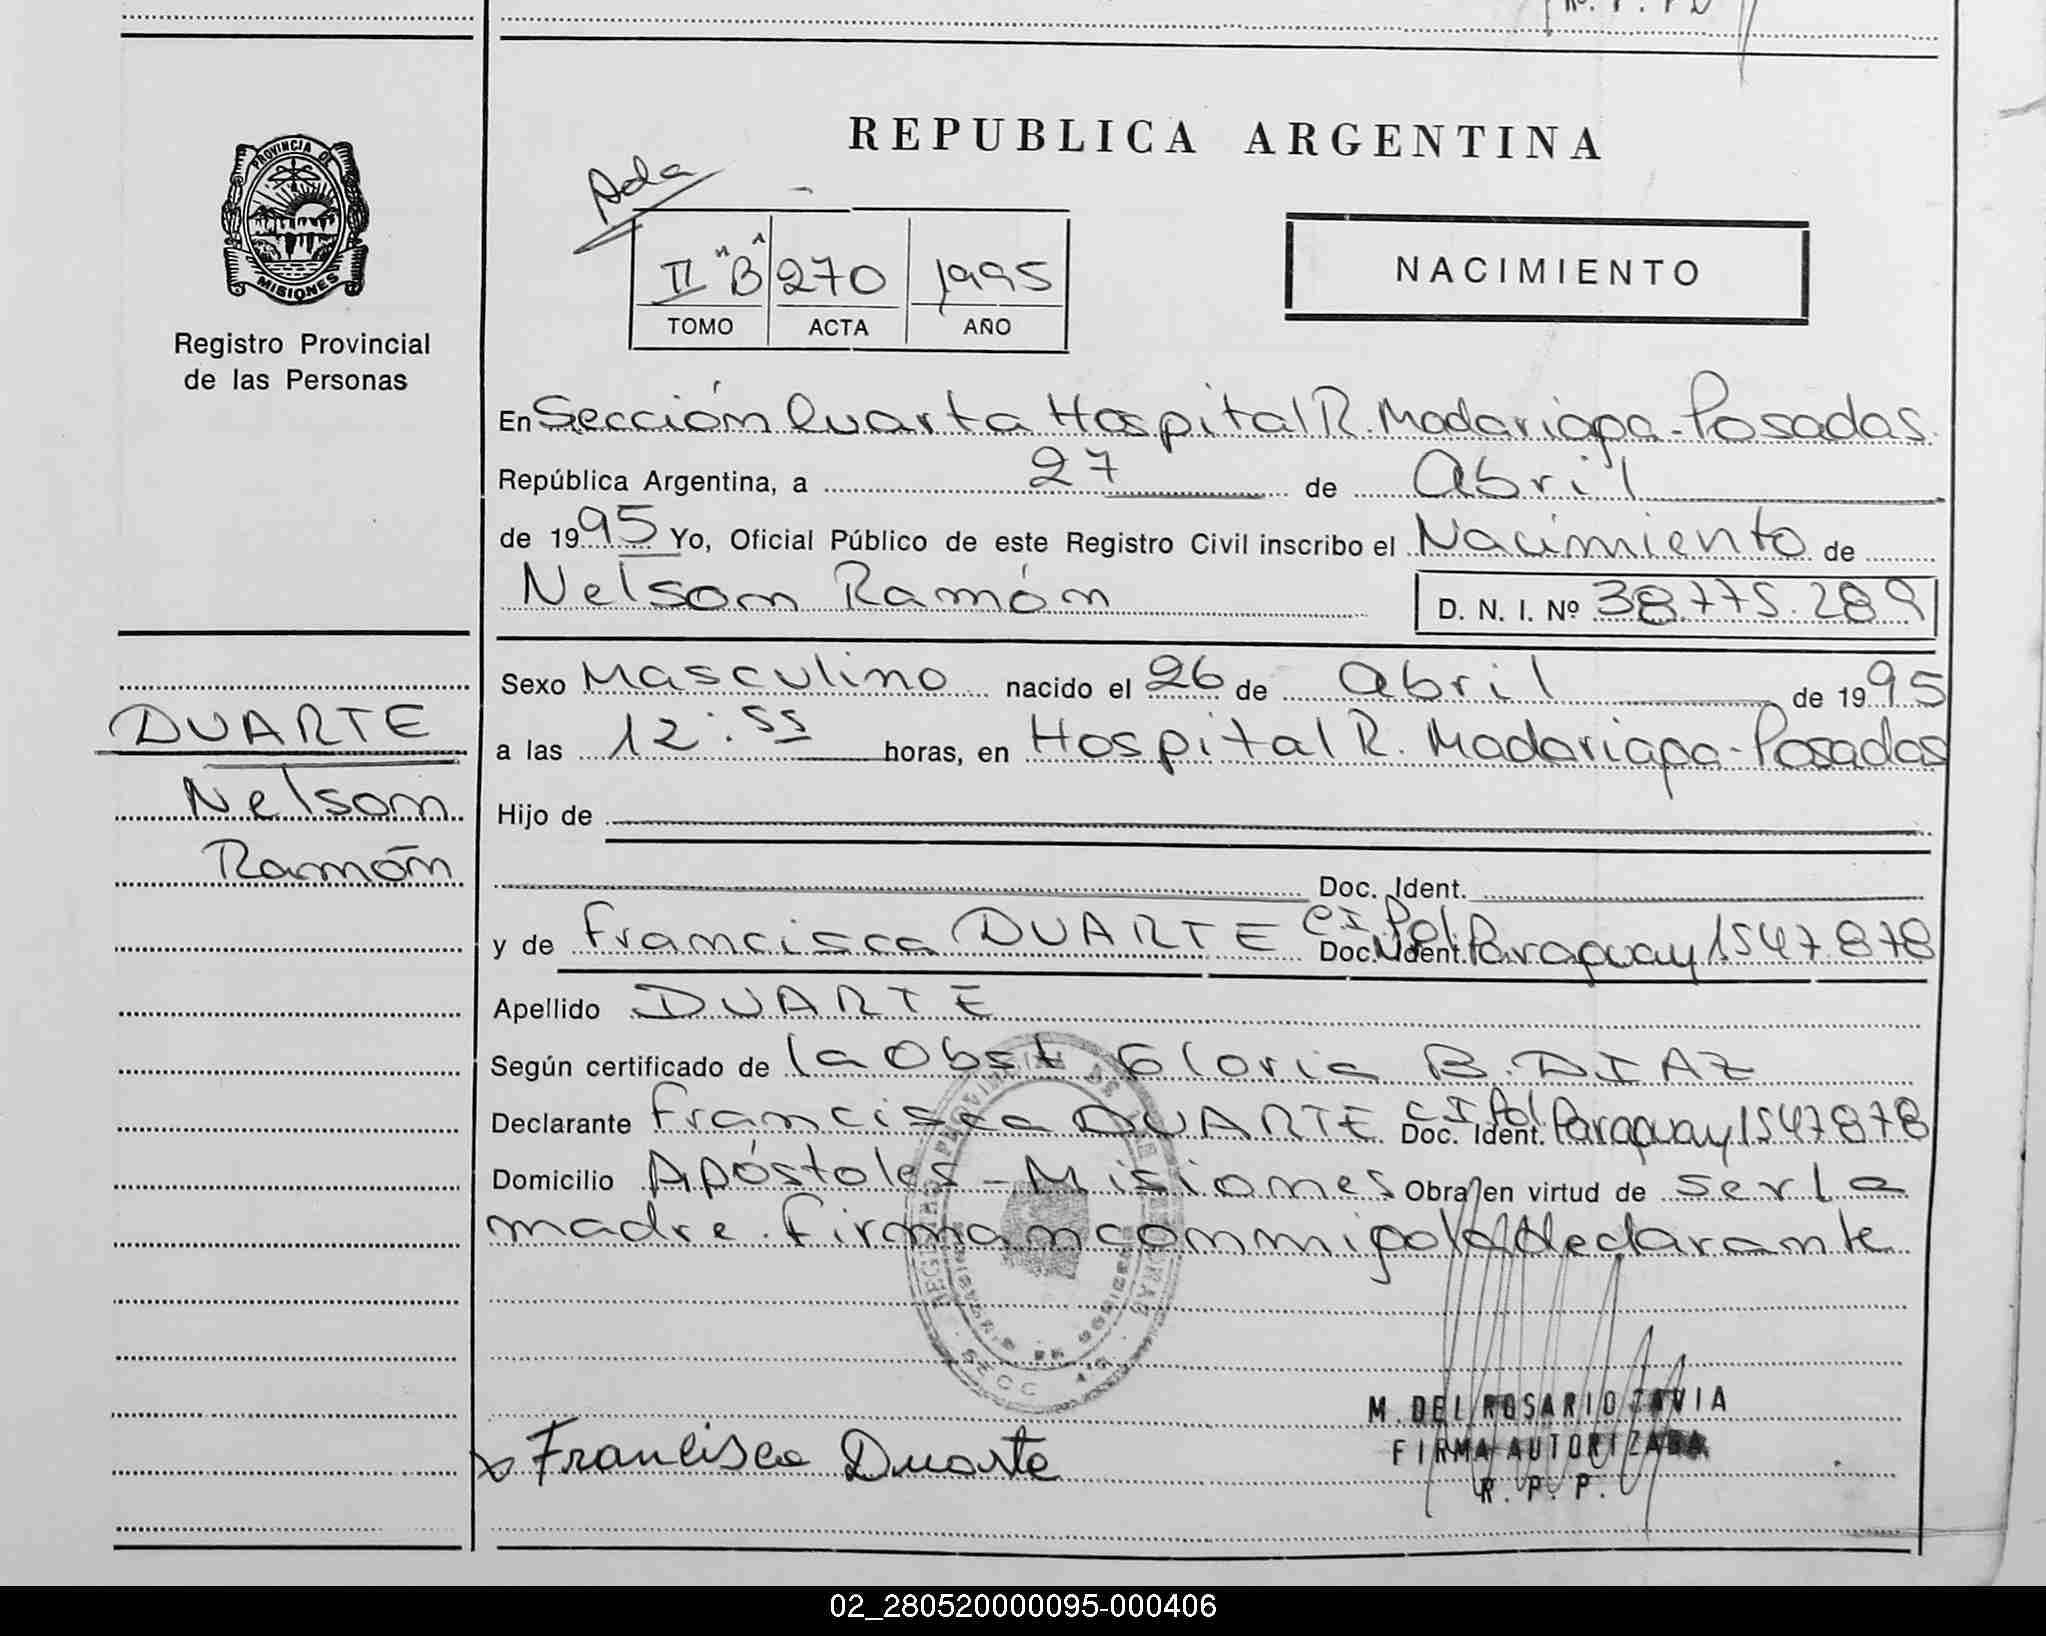 PROVINCIA DE
MISIONES
Registro Provincial
de las Personas
DUARTE
Nelson
Ramón
REPUBLICA ARGENTINA
II "B" 270 1995
TOMO ACTA AÑO
NACIMIENTO
En Sección Cuarta Hospital R. Madariaga - Posadas.
República Argentina, a 27 de Abril
de 1995 Yo, Oficial Público de este Registro Civil inscribo el Nacimiento de
Nelson Ramón D. N. I. Nº 38.775.289
Sexo Masculino nacido el 26 de Abril de 1995
a las 12:55 horas, en Hospital R. Madariaga - Posadas
Hijo de
Doc. Ident.
y de Francisca DUARTE Doc. Ident. C.I. Pol. Paraguay 1547.878
Apellido DUARTE
Según certificado de la Obst Gloria B. DIAZ
Declarante Francisca DUARTE Doc. Ident. C.I. Pol. Paraguay 1547878
Domicilio Apóstoles - Misiones Obra en virtud de ser la
madre. Firman conmigo la declarante
Francisca Duarte
M. DEL ROSARIO
FIRMA AUTORIZADA
R. P. P.
02_280520000095-000406